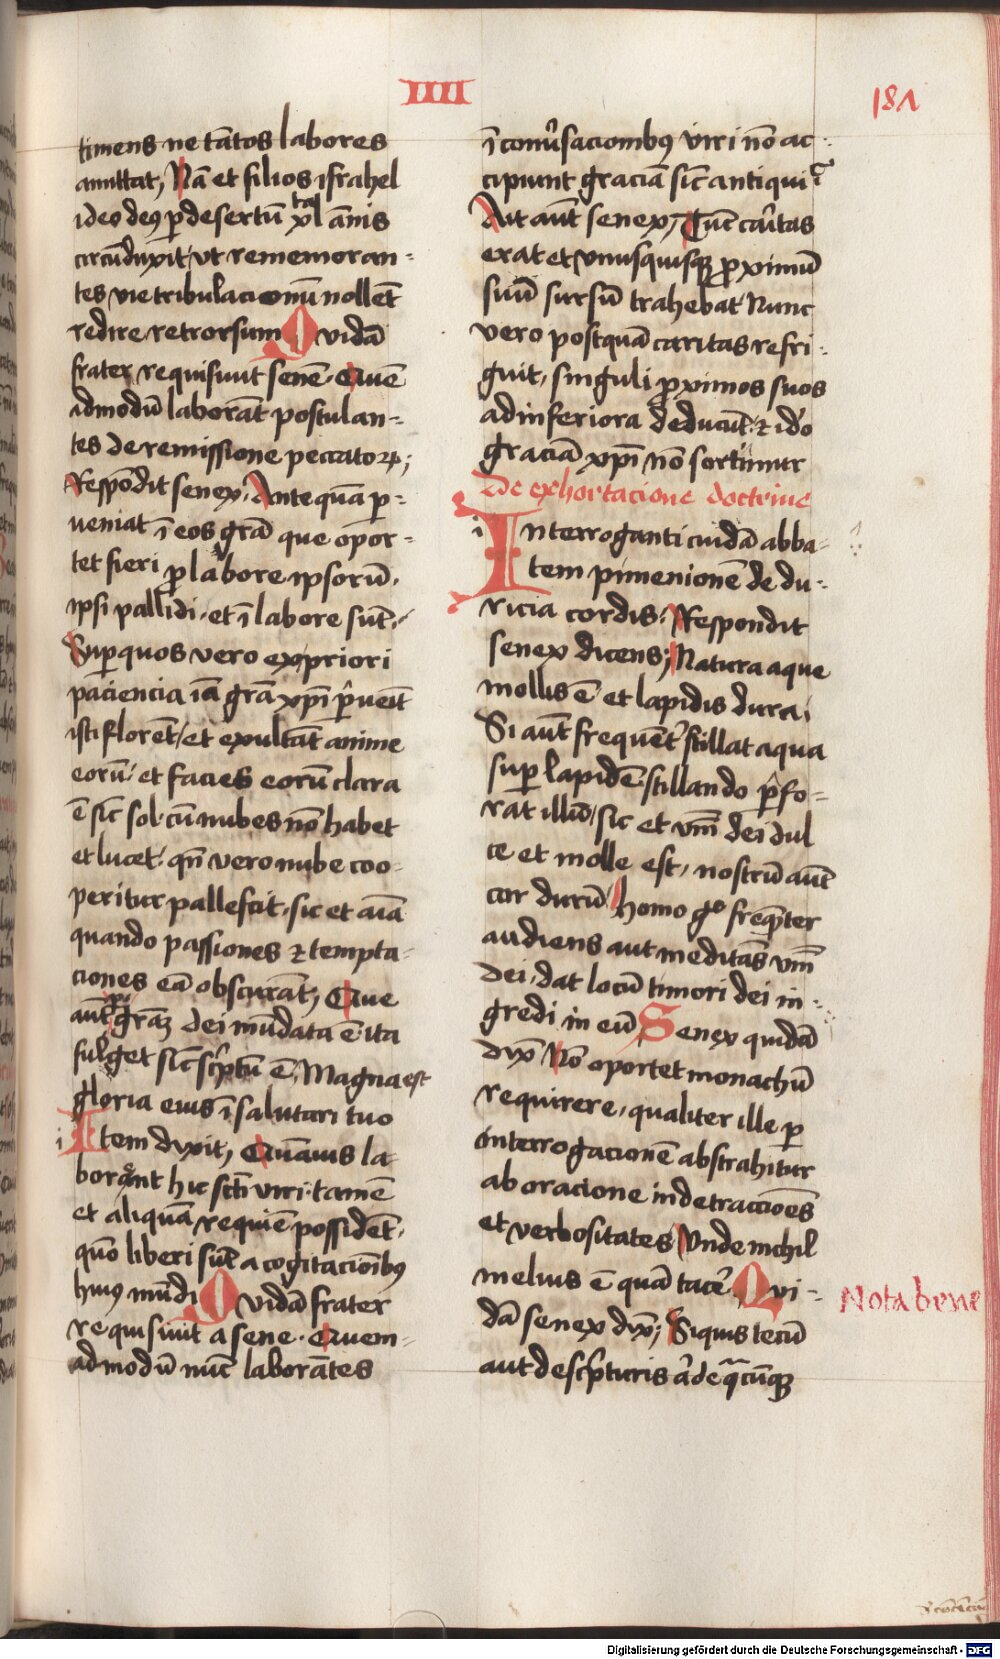 IIII
181
timens ne tātos labores
amittat, Nā et filios israhel
ideo deꝰ ꝑ desertū xl ta ānis
circūduxit ut rememoran-
tes vie tribulacionū nollēt
redire retrorsum Quidā
frater requisiuit senē. Quē
admodū laborāt postulan-
tes de remissione peccatoꝝ;
Respōdit senex, Antequā ꝑ-
veniat ī eos grā que opor-
tet fieri ꝓ labore ipsorū,
ipsi pallidi, et ī labore sūt,
Suꝑ quos vero ex priori
paciencia iā grā xp̄i ꝑuēit
isti florēt, et exultāt anime
eorū, et facies eorū clara
ē sic̄ sol, cū nubes nō habet
et lucet, qn̄ vero nube coo-
peritur pallescit, sic et aīa
quando passiones ⁊ tempta-
ciones eā obscurāt, Que
aūt ꝑ grāȝ dei mūdata ē ita
fulget sic̄ scͥptū ē, Magna est
gloria eius ī salutari tuo
i Item dixit, Quāuis la-
borāt hic sc̄ti viri, tamē
et aliquā requiē possidēt,
quō liberi sūt a cogitacionībꝰ
huiꝰ mūdi Quidā frater
requisiuit a sene. Quem-
admodū nūc laborātes
ī conuͥsacionibꝰ viri nō ac-
cipiunt graciā sic̄ antiqui
Ait aūt senex, Tūc caͥitas
erat et vnusquisqꝫ ꝓximū
suū sursū trahebat Nunc
vero postquā caritas refri-
guit, singuli ꝓximos suos
ad inferiora deducūt, ⁊ iō
graciā xp̄i nō sortiuntur
De exhortacione doctrine
i Interroganti cuidā abba-
tem pimenionē de du-
ricia cordis, Respondit
senex dicens; Natura aque
mollis ē et lapidis dura,
Si aūt frequēt stillat aqua
suꝑ lapidē stillando ꝑfo-
rat illū, sic et vm̄ dei dul
ce et molle est, nostrū aūt
cor durū, homo gͦ freqn̄ter
audiens aut meditās vm̄
dei, dat locū timori dei in-
gredi in eū Senex quidā
dixͭ Nō oportet monachū
requirere, qualiter ille ꝑ
interrogacionē abstrahitur
ab oracione in detracciōes
et verbositates, Vnde nichil
melius ē quā tacē. Qui-
dā senex dixͭ; Si quis tecū
aut de scͥpturis aͥ de qͣcūqꝫ
Nota bene
Digitalisierung gefördert durch die Deutsche Forschungsgemeinschaft - DFG